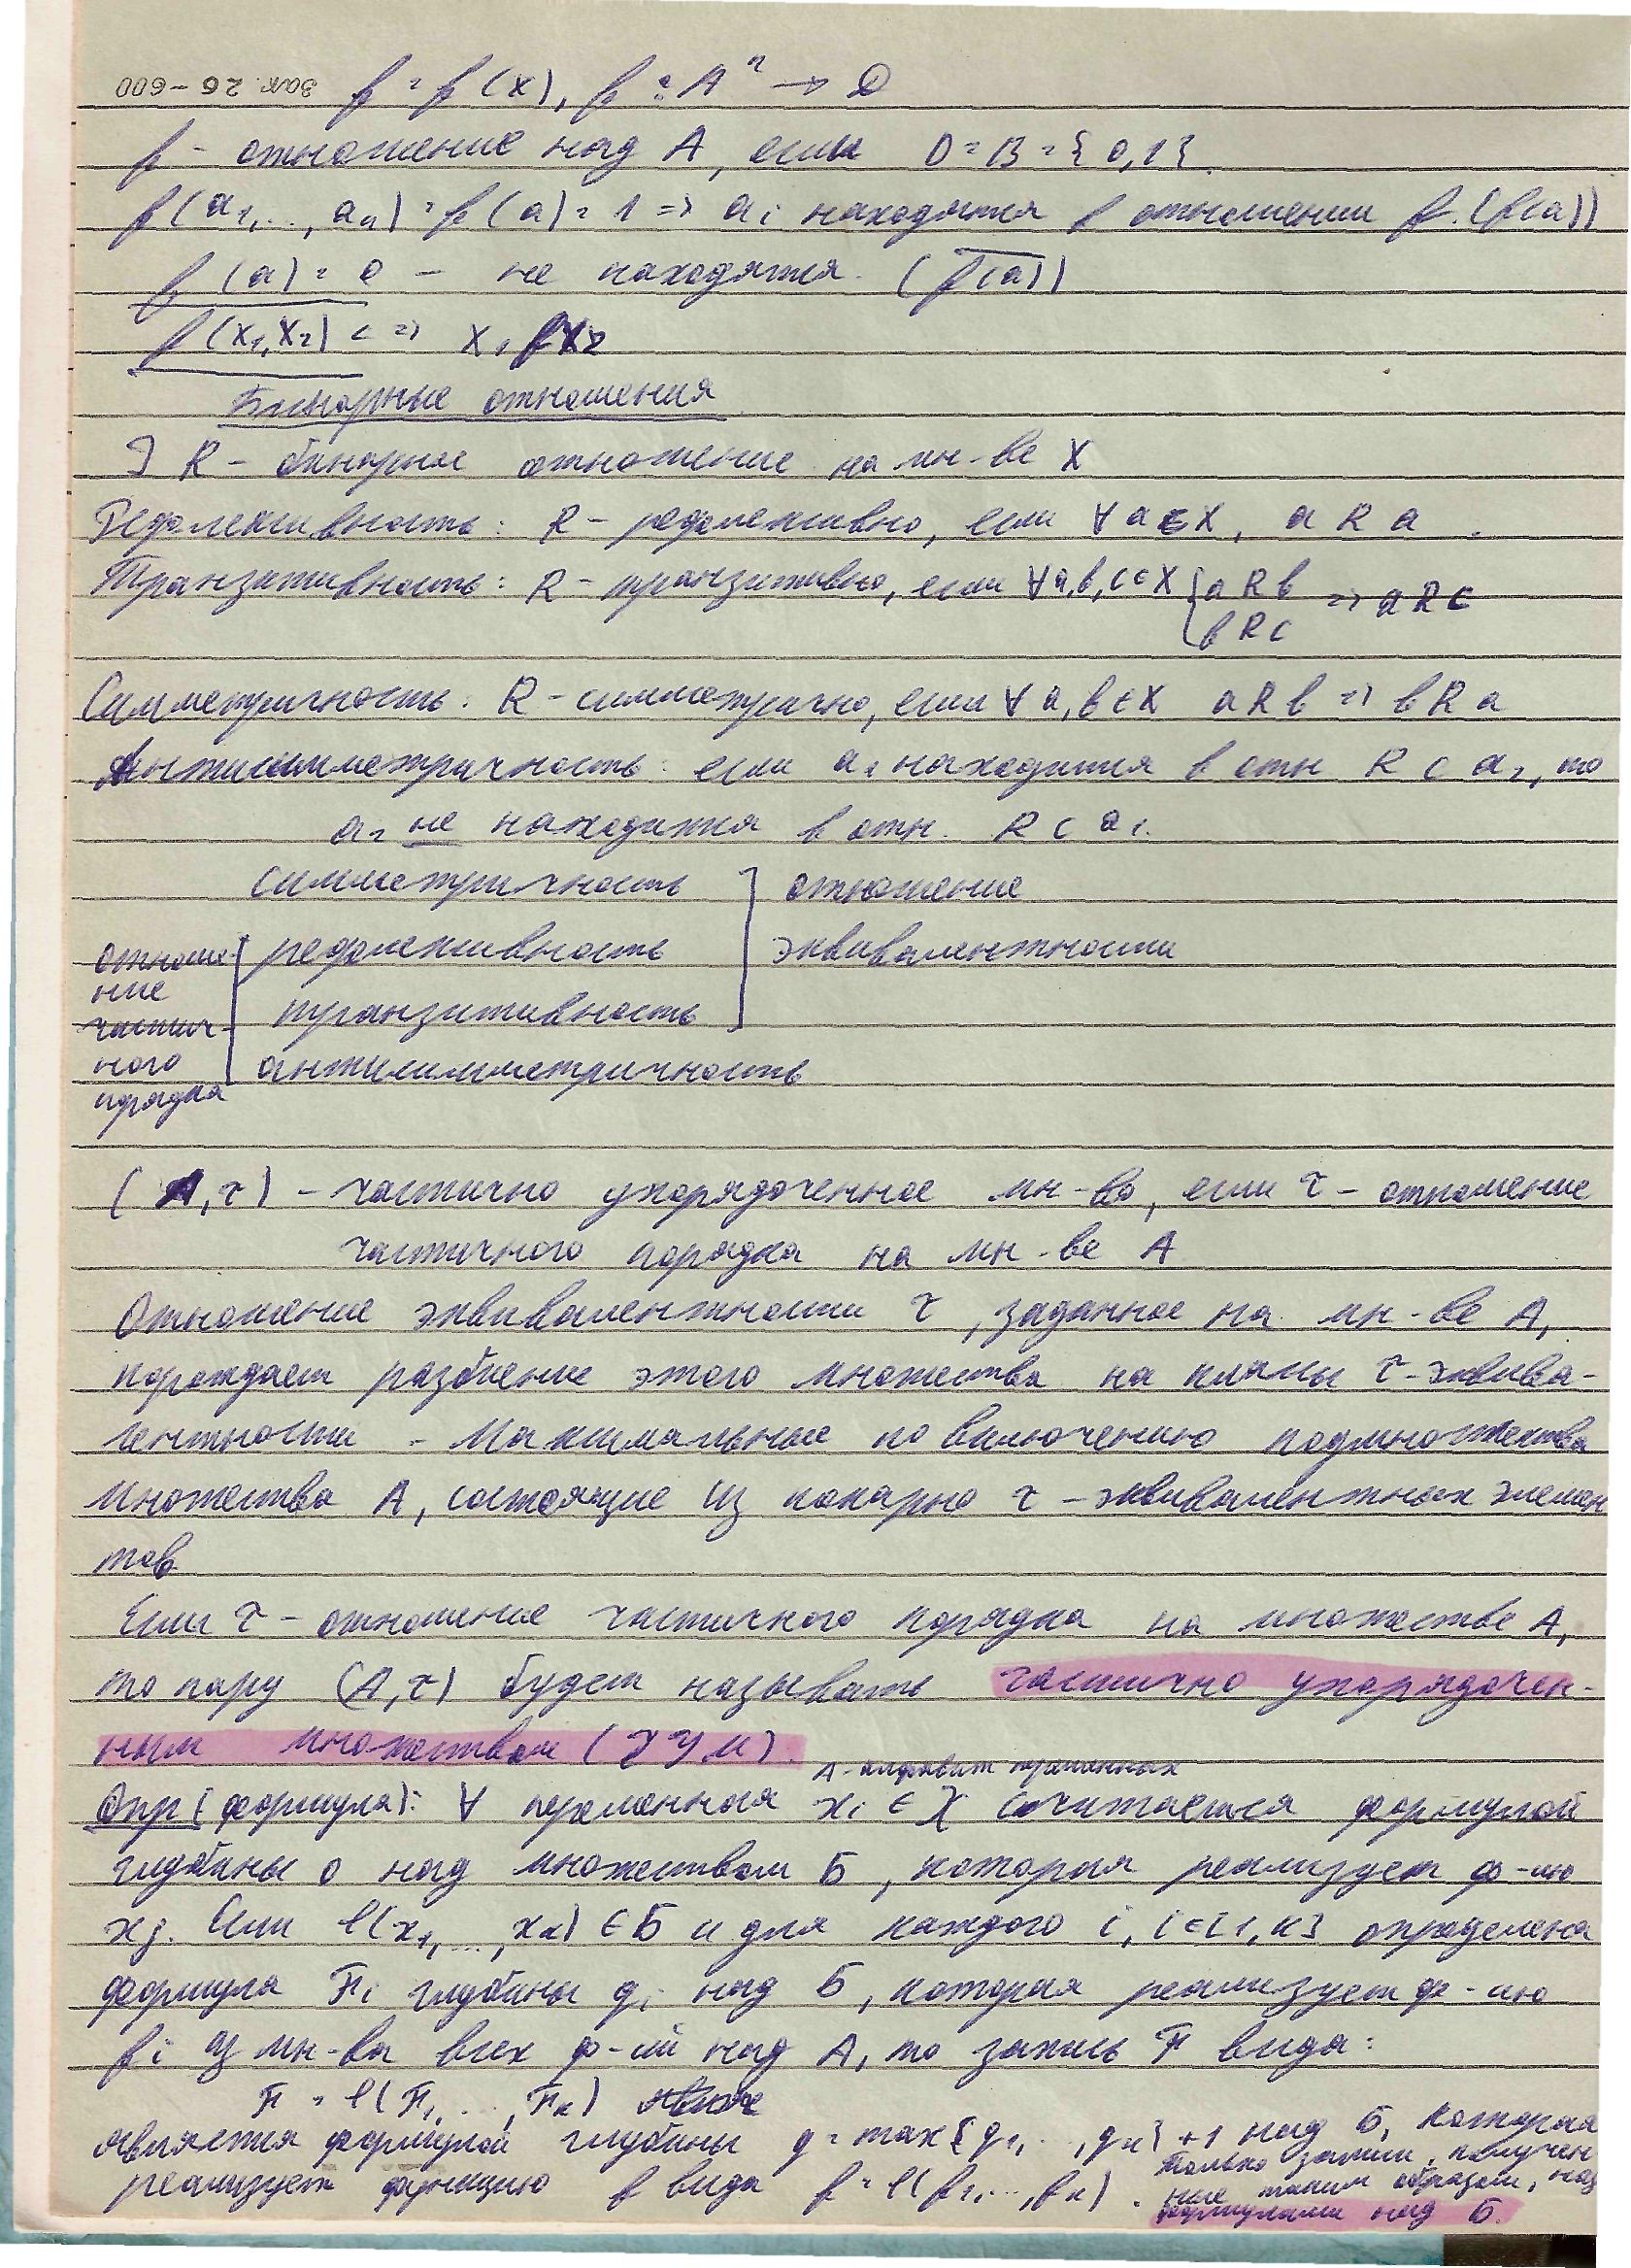 Зак. 26-600
f = f(x), f : A^n → D
f - отношение над A, если D = B = {0,1}.
f(a1,..., an) = f(a) = 1 => ai находятся в отношении f. (f(a))
f(a) = 0 — не находятся. (f(a))
f(x1,x2) <=> x1 f x2
Бинарные отношения
] R - бинарное отношение на мн-ве X
Рефлексивность: R - рефлексивно, если ∀ a ∈ X, a R a.
Транзитивность: R - транзитивно, если ∀ a,b,c ∈ X { a R b => a R c
b R c
Симметричность: R - симметрично, если ∀ a,b ∈ X a R b => b R a
Антисимметричность: если a1 находится в отн R с a2, то
a2 не находится в отн. R с a1.
симметричность ] отношение
отноше- [ рефлексивность эквивалентности
ние
частич- транзитивность
ного антисимметричность
порядка
(A, τ) - частично упорядоченное мн-во, если τ - отношение
частичного порядка на мн-ве A
Отношение эквивалентности τ, заданное на мн-ве A,
порождает разбиение этого множества на классы τ-эквива-
лентности - максимальные по включению подмножества
множества A, состоящие из попарно τ-эквивалентных элемен
тов.
Если τ - отношение частичного порядка на множестве A,
то пару (A, τ) будем называть частично упорядочен-
ным множеством (ЧУМ).
A - алфавит переменных
Опр (формула): ∀ переменная xi ∈ X считается формулой
глубины 0 над множеством Б, которая реализует ф-ию
xj. Если φ(x1,...,xk) ∈ Б и для каждого i, i ∈ [1,k] определена
формула Fi глубины qi над Б, которая реализует ф-ию
fi из мн-ва всех ф-ий над A, то запись F вида:
F = φ(F1,...,Fk)
является формулой глубины q = max{q1,..,qk} + 1 над Б, которая
реализует функцию f вида f = φ(f1,...,fk).
только записи, получен
ные таким образом, наз
формулами над Б.